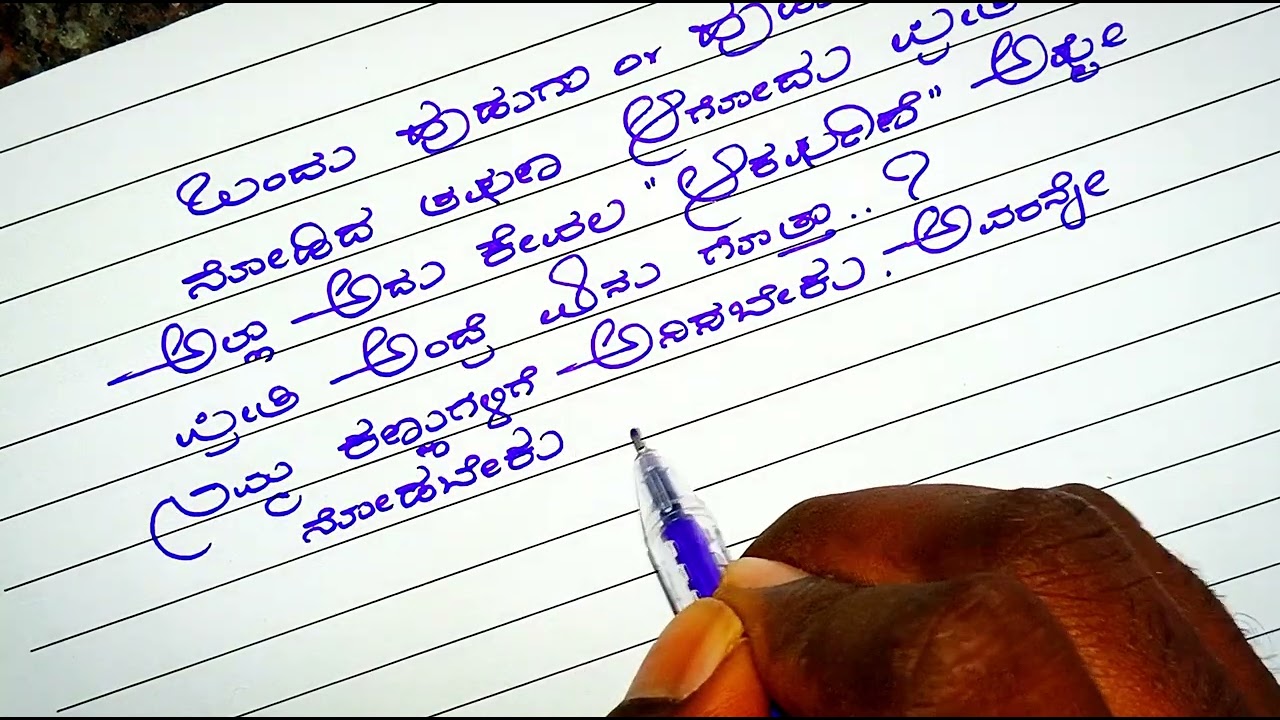 ಒಂದು ಹುಡುಗಾ or
ನೋಡಿದ ತಕ್ಷಣ ಆಗೋದು ಪ್ರೀತಿ
ಅಲ್ಲಾ ಅದು ಕೇವಲ "ಆಕರ್ಷಣೆ" ಅಷ್ಟೇ
ಪ್ರೀತಿ ಅಂದ್ರೆ ಏನು ಗೊತ್ತಾ..?
ನಿಮ್ಮ ಕಣ್ಣುಗಳಿಗೆ ಅನಿಸಬೇಕು. ಅವರನ್ನೇ
ನೋಡಬೇಕು